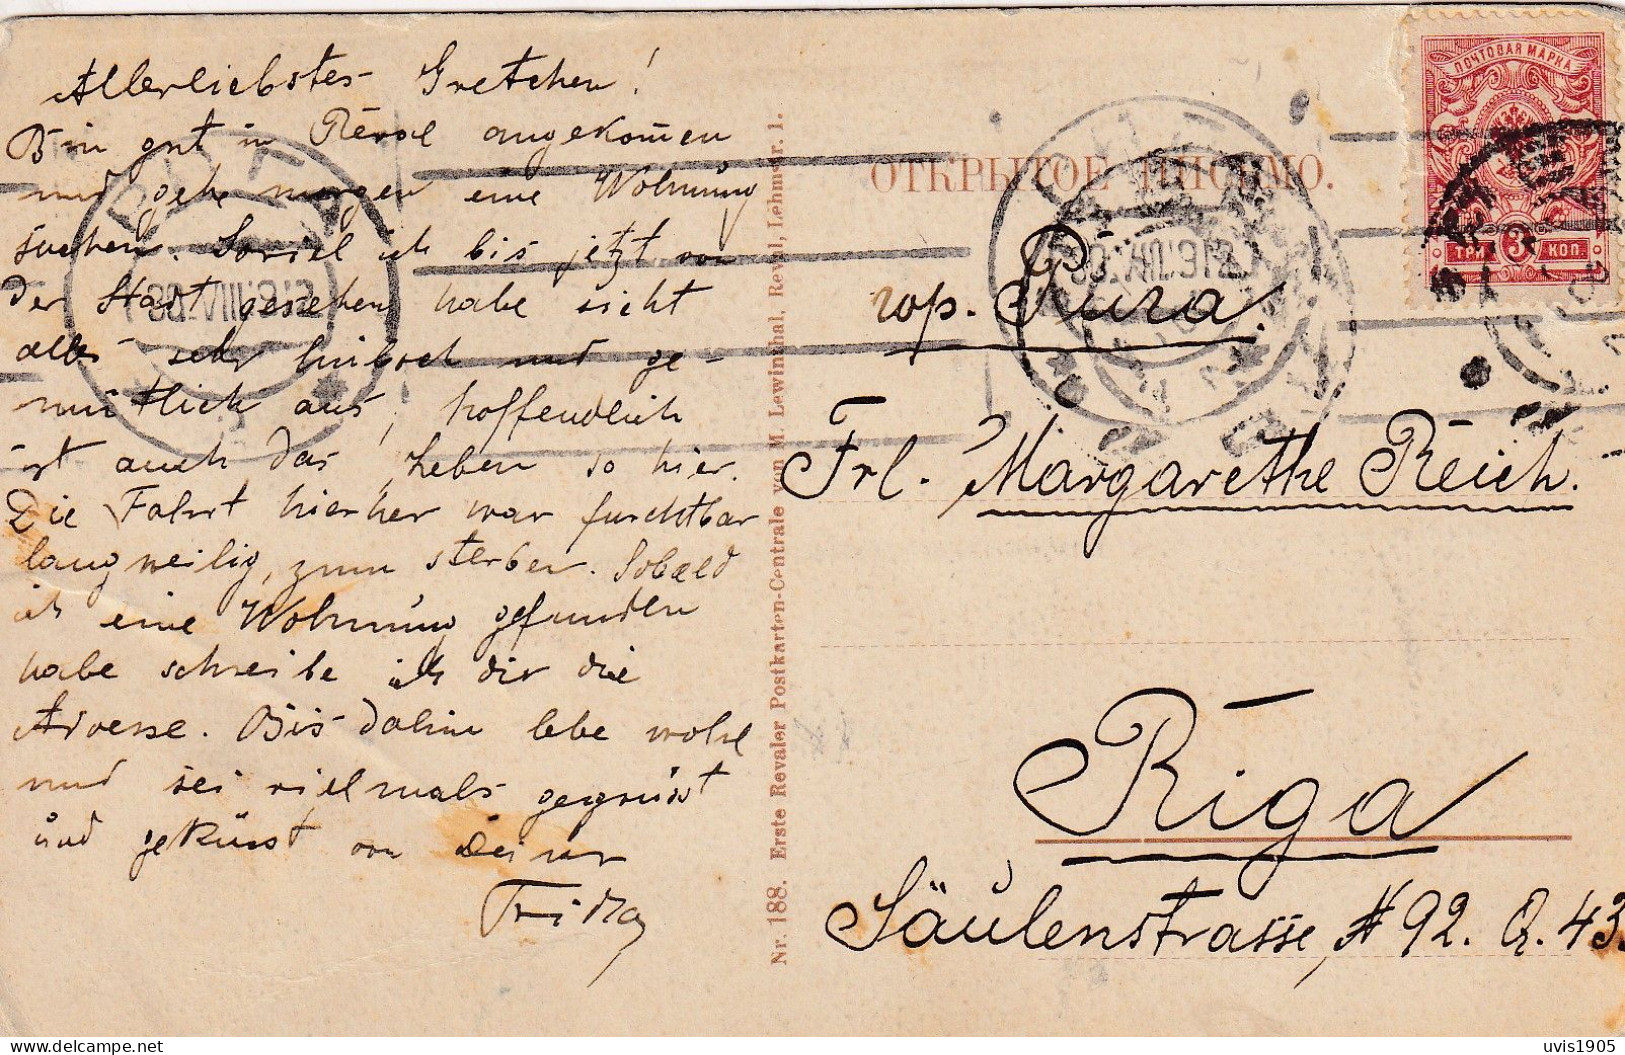 Allerliebstes Gretchen!
Bin gut in Reval angekom̄en
und gehe morgen eine Wohnung
suchen. Soviel ich bis jetzt von
der Stadt gesehen habe sieht
alles sehr hübsch und ge-
mütlich aus, hoffendlich
ist auch das Leben so hier.
Die Fahrt hierher war furchtbar
langweilig, zum sterben. Sobald
ich eine Wohnung gefunden
habe schreibe ich dir die
Adresse. Bis dahin lebe wohl
und sei vielmals gegrüsst
und geküsst von Deiner
Frida
Nr. 188. Erste Revaler Postkarten-Centrale von M. Lewinthal, Reval, Lehmstr. 1.
ОТКРЫТОЕ ПИСЬМО.
ПОЧТОВАЯ МАРКА
3
ТРИ КОП.
гор. Рига.
Frl. Margarethe Reich.
Riga
Säulenstrasse, № 92. Q. 43.
delcampe.net
uvis1905